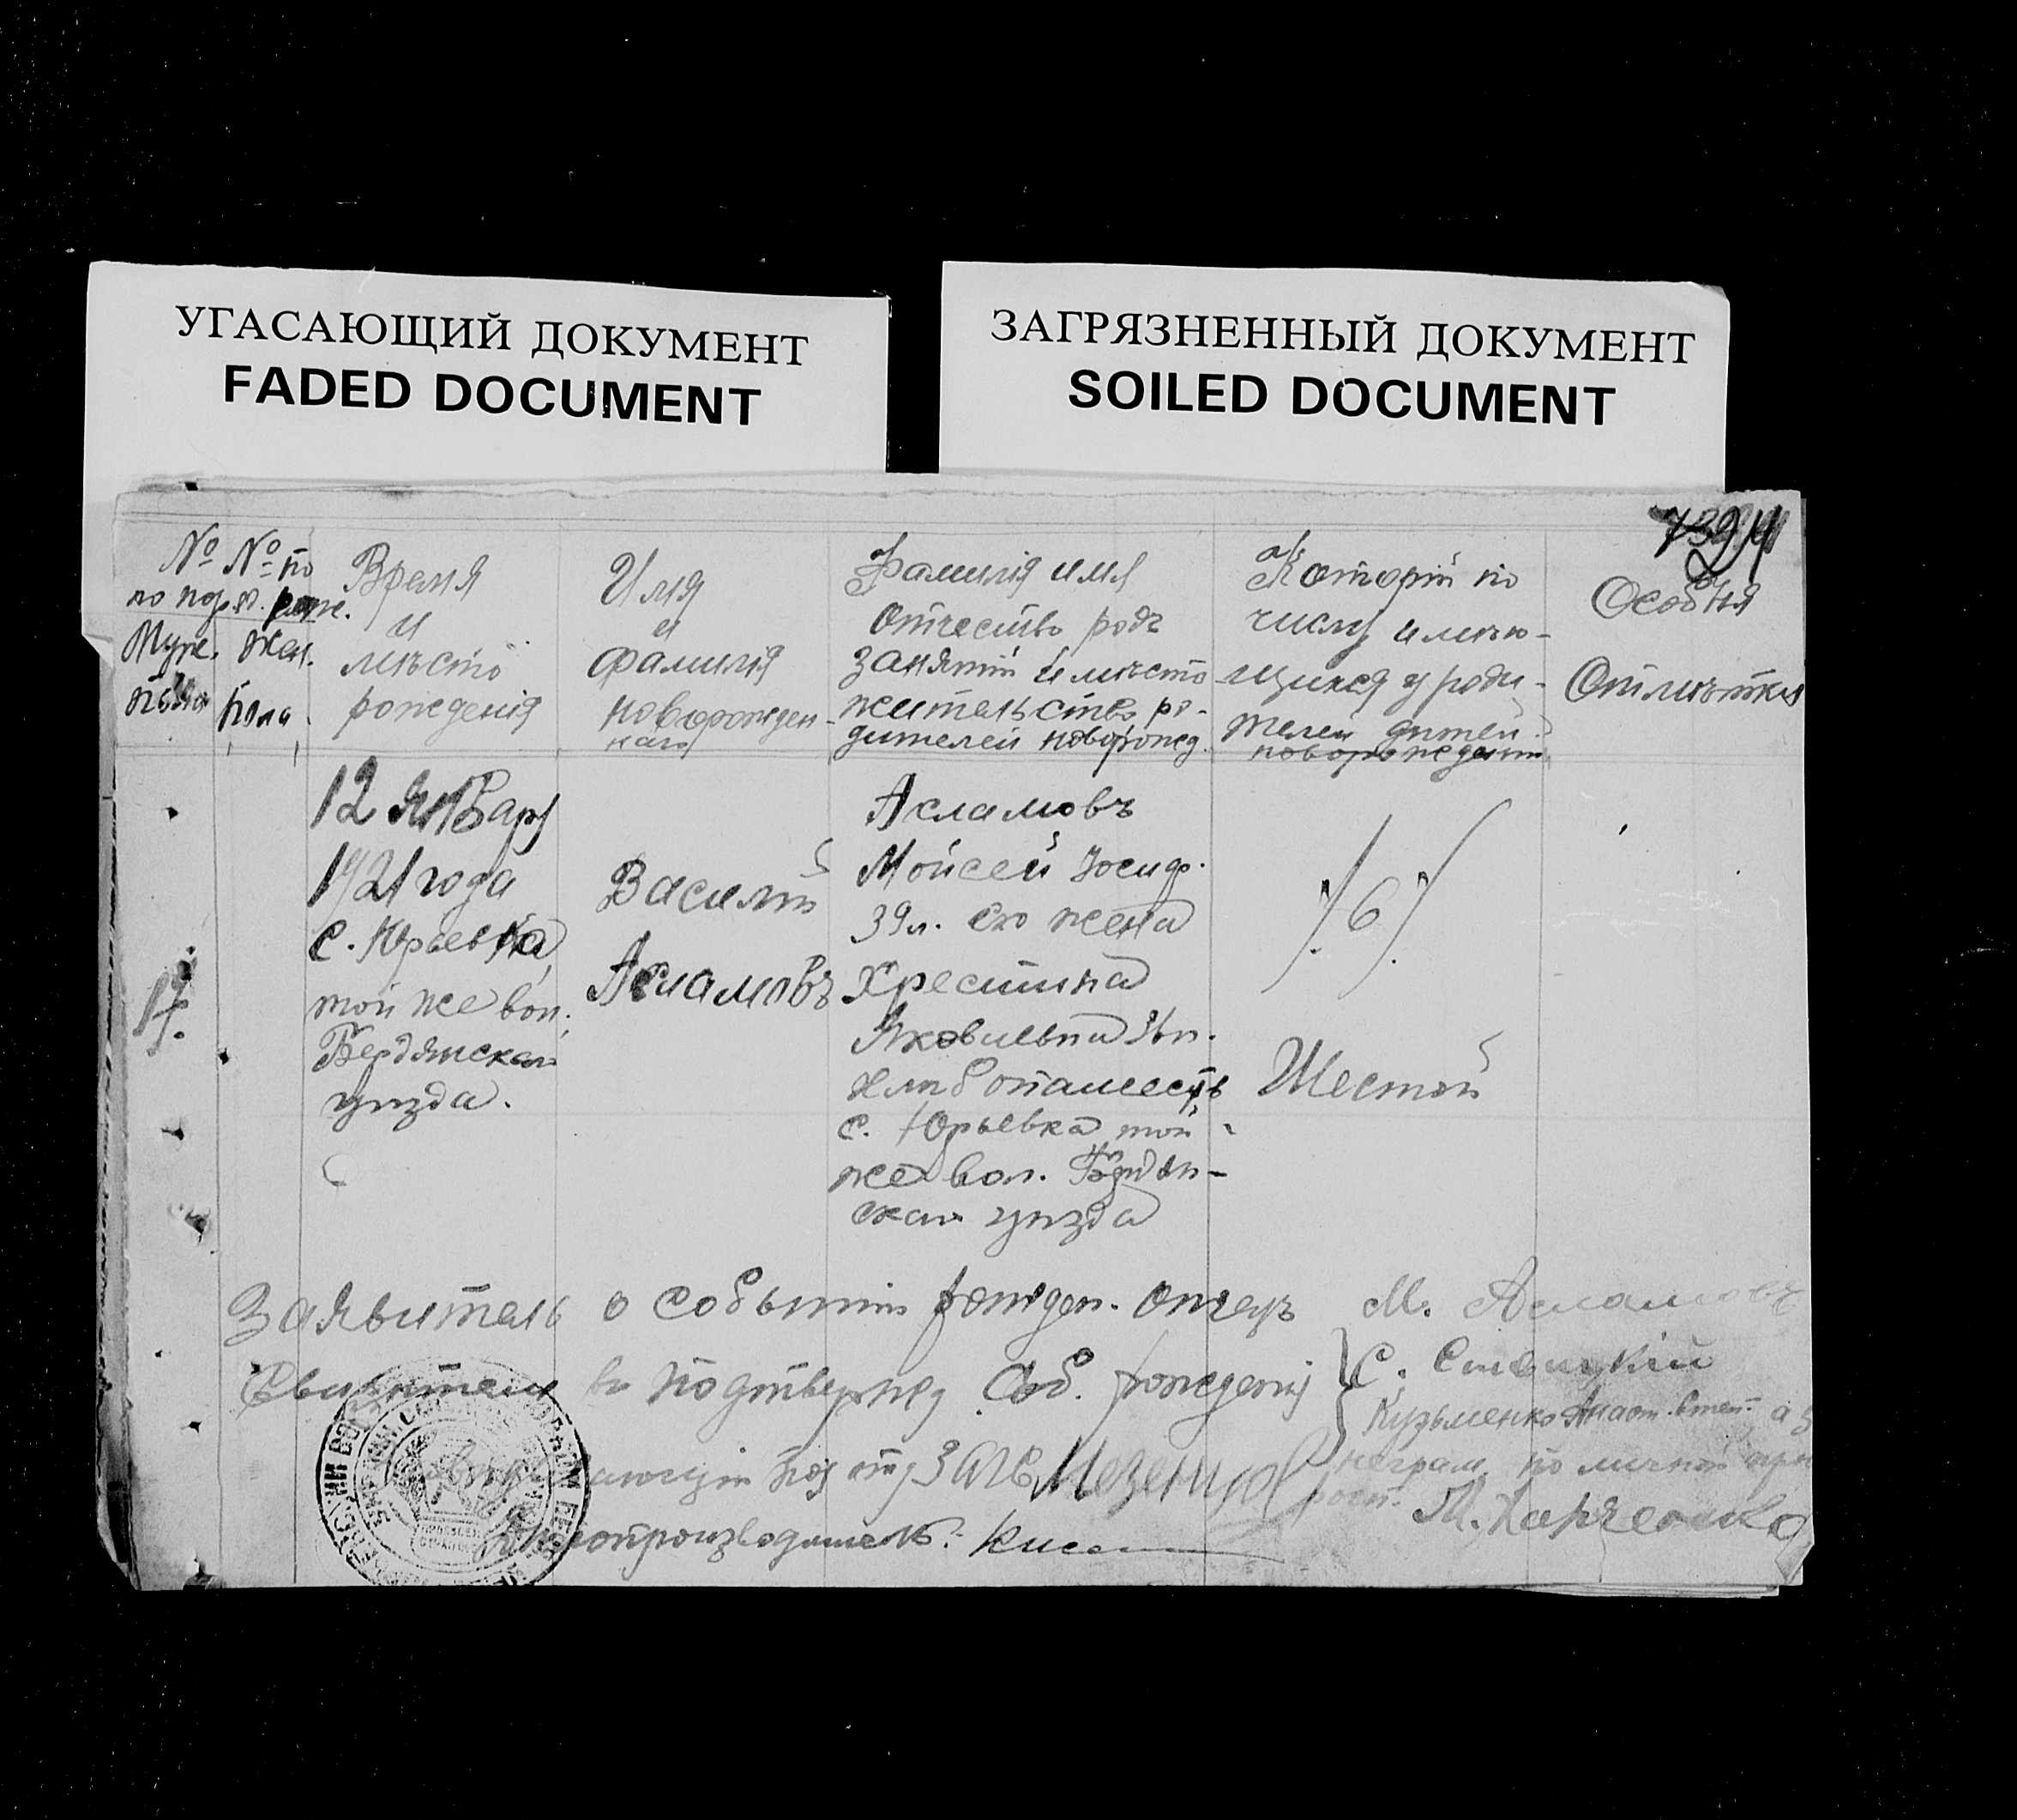 УГАСАЮЩИЙ ДОКУМЕНТ
FADED DOCUMENT
ЗАГРЯЗНЕННЫЙ ДОКУМЕНТ
SOILED DOCUMENT
№
по пор.
Муж.
пола
№ по
жен.
пола
Время
и
мѣсто
рожденія
Имя
и
фамилія
новорожден-
наго
Фамилія имя
Отчество родъ
занятій и мѣсто
жительство ро-
дителей новорожд.
Который по
числу имѣю-
щихся у роди-
телей дитей
новорожденный
Особыя
Отмѣтки
17.
12 Января
1921 года
с. Юрьевка,
той же вол.
Бердянскаго
уѣзда.
Василій
Асламовъ
Асламовъ
Мойсей Іосиф.
39 л. его жена
Хрестина
Яковлевна
Хлѣбопашество
с. Юрьевка той
же вол. Бердян-
скаго уѣзда
"/6/"
Шестой
Заявитель о событіи рожден. отецъ М. Асламовъ
Свидѣтели въ подтвержд. Соб. рожденія С. Ставицкій
Кузьменко
неграм. по личной
Завѣдывающій под отд ЗАГС Мезенцов
М. Харченко
Дѣлопроизводитель: